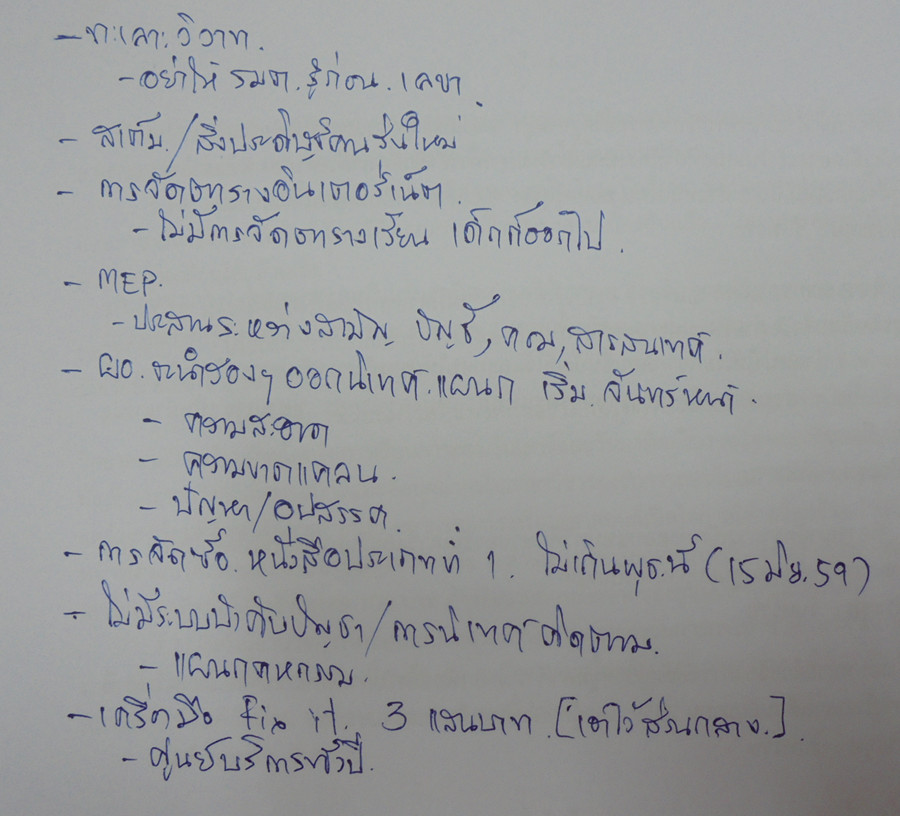 - ทะเลาะวิวาท.
- อย่าให้ รมต. รู้ก่อน. เลขา.
- /สิ่งประดิษฐ์คนรุ่นใหม่
- การจัดตารางอินเตอร์เน็ต.
- ไม่มีการจัดตารางเรียน เด็กก็ออกไป.
- MEP.
- ประสานระหว่างสามัญ บัญชี, คอม, สารสนเทศ.
- ผอ. รองๆ ออกนิเทศ.แผนก เริ่ม. จันทร์หน้า.
- ความสะอาด
- ความขาดแคลน.
- ปัญหา/อุปสรรค.
- การจัดซื้อ. หนังสือประเภทที่ 1. ไม่เกินพุธ.นี้ (15 มิย. 59)
- ไม่มีระบบบังคับบัญชา/การนิเทศ ติดตาม.
- แผนกคหกรรม.
- เครื่องมือ fix it. 3 แสนบาท. [เอาไว้ส่วนกลาง.].
- ศูนย์บริการทั้งปี.